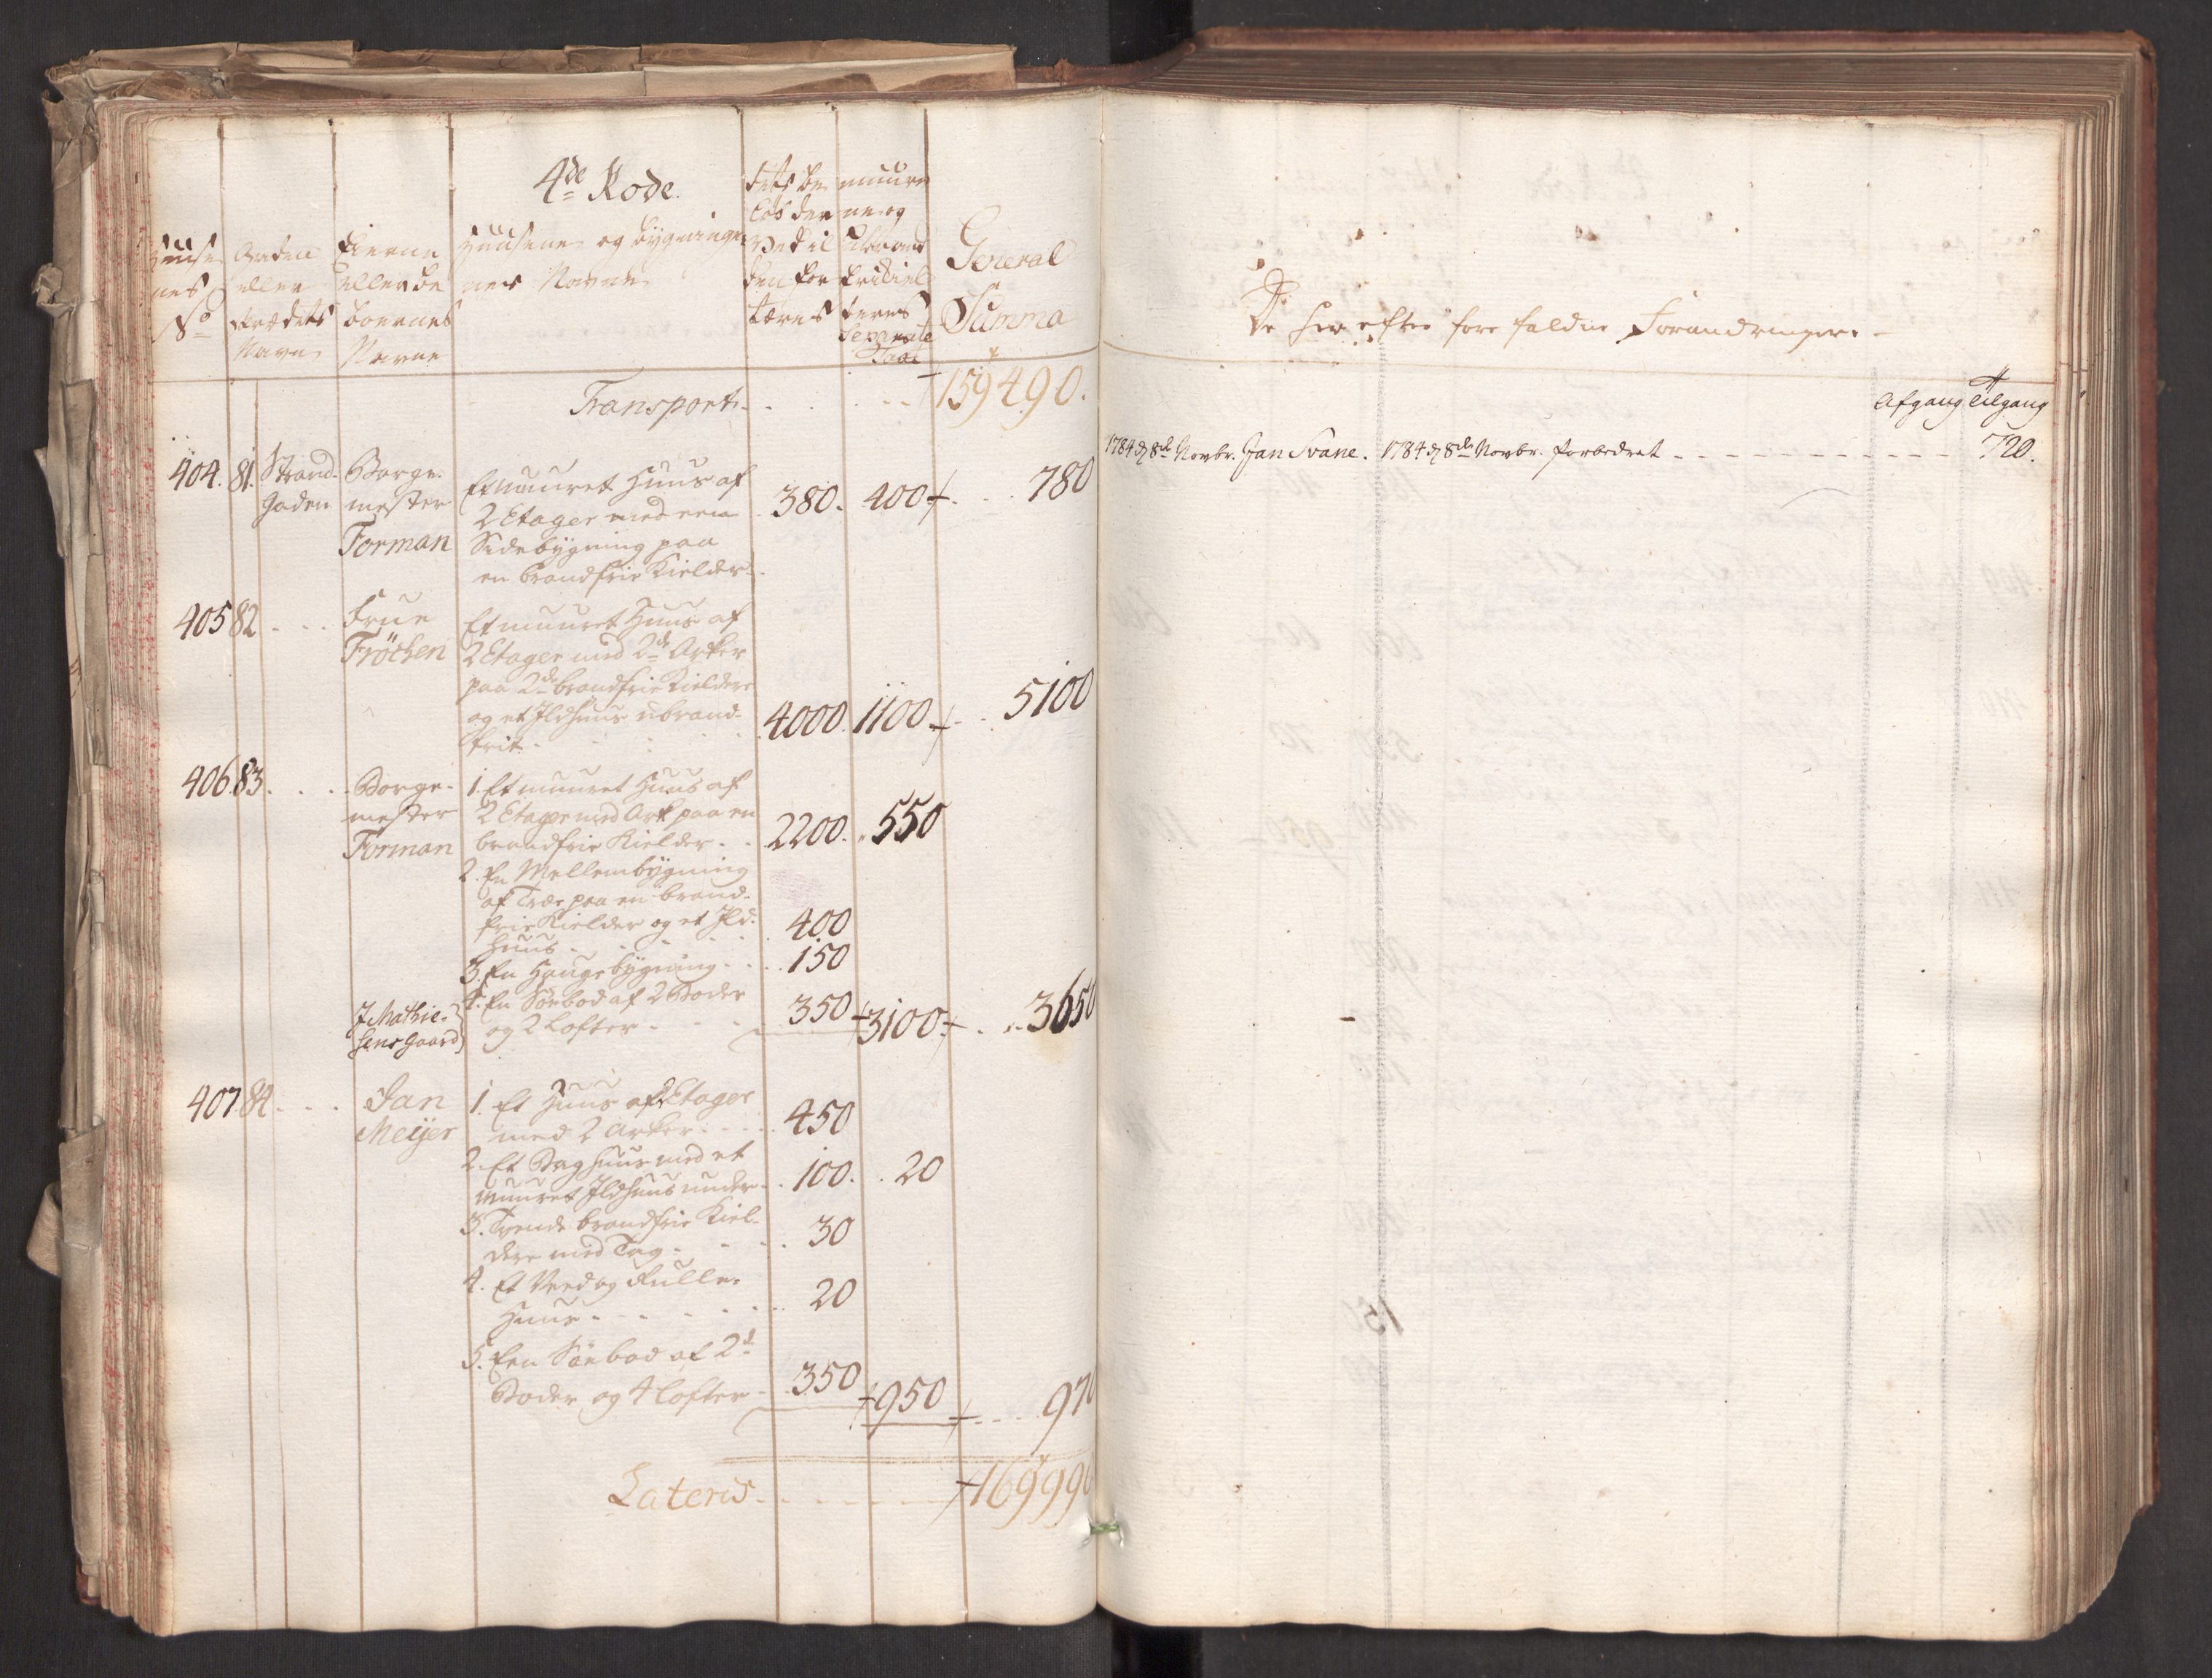 4de Rode.
Huuse
nes
No
Gaden
eller
Strædets
Navn
Eierne
eller be
boernes
Navne
Huusenes og bygninger
nes Navne
General
Summa
Transport - 159490.
404. 81. Strand
Gaden
Borge-
mester
Forman
Et muuret Huus af
2 Etager med een
Sidebÿgning paa
en brandfrie Kielder 380. 400 780
405 82 Frue
Fröchen
Et muuret Huus af
2 Etager med 2de Arker
paa 2de brandfrie Kieldere
og et Ildhuus ubrand-
frit 4000. 1100 5100
406. 83. Borge-
mester
Forman
1. Et muuret Huus af
2 Etager med Ark paa en
brandfrie Kielder 2200. 550
2. En Mellembÿgning
af Træe paa en brand-
frie Kielder og et Ild-
huus 400
3. En Haugebÿgning 150
J Mathie-
sens Gaard
4. En Söebod af 2 Boder
og 2 Lofter 350 3100 3650
407 84 Jan
Meÿer
1. Et Huus af 2 Etager
med 2 Arker 450
2. Et Baghuus med et
muuret Ildhuus under 100. 20
3. Tvende brandfrie Kiel-
dere med Tag 30
4. Et Veed og Rulle-
Huus 20
5. Een Söebod af 2de
Boder og 4 Lofter 350 950 970
Lateris 169990
De her efter fore faldne Forandringer
Afgang Tilgang
1784 d 8de Novbr. Jan Svane. 1784 d 8de Novbr. forbedret 720.